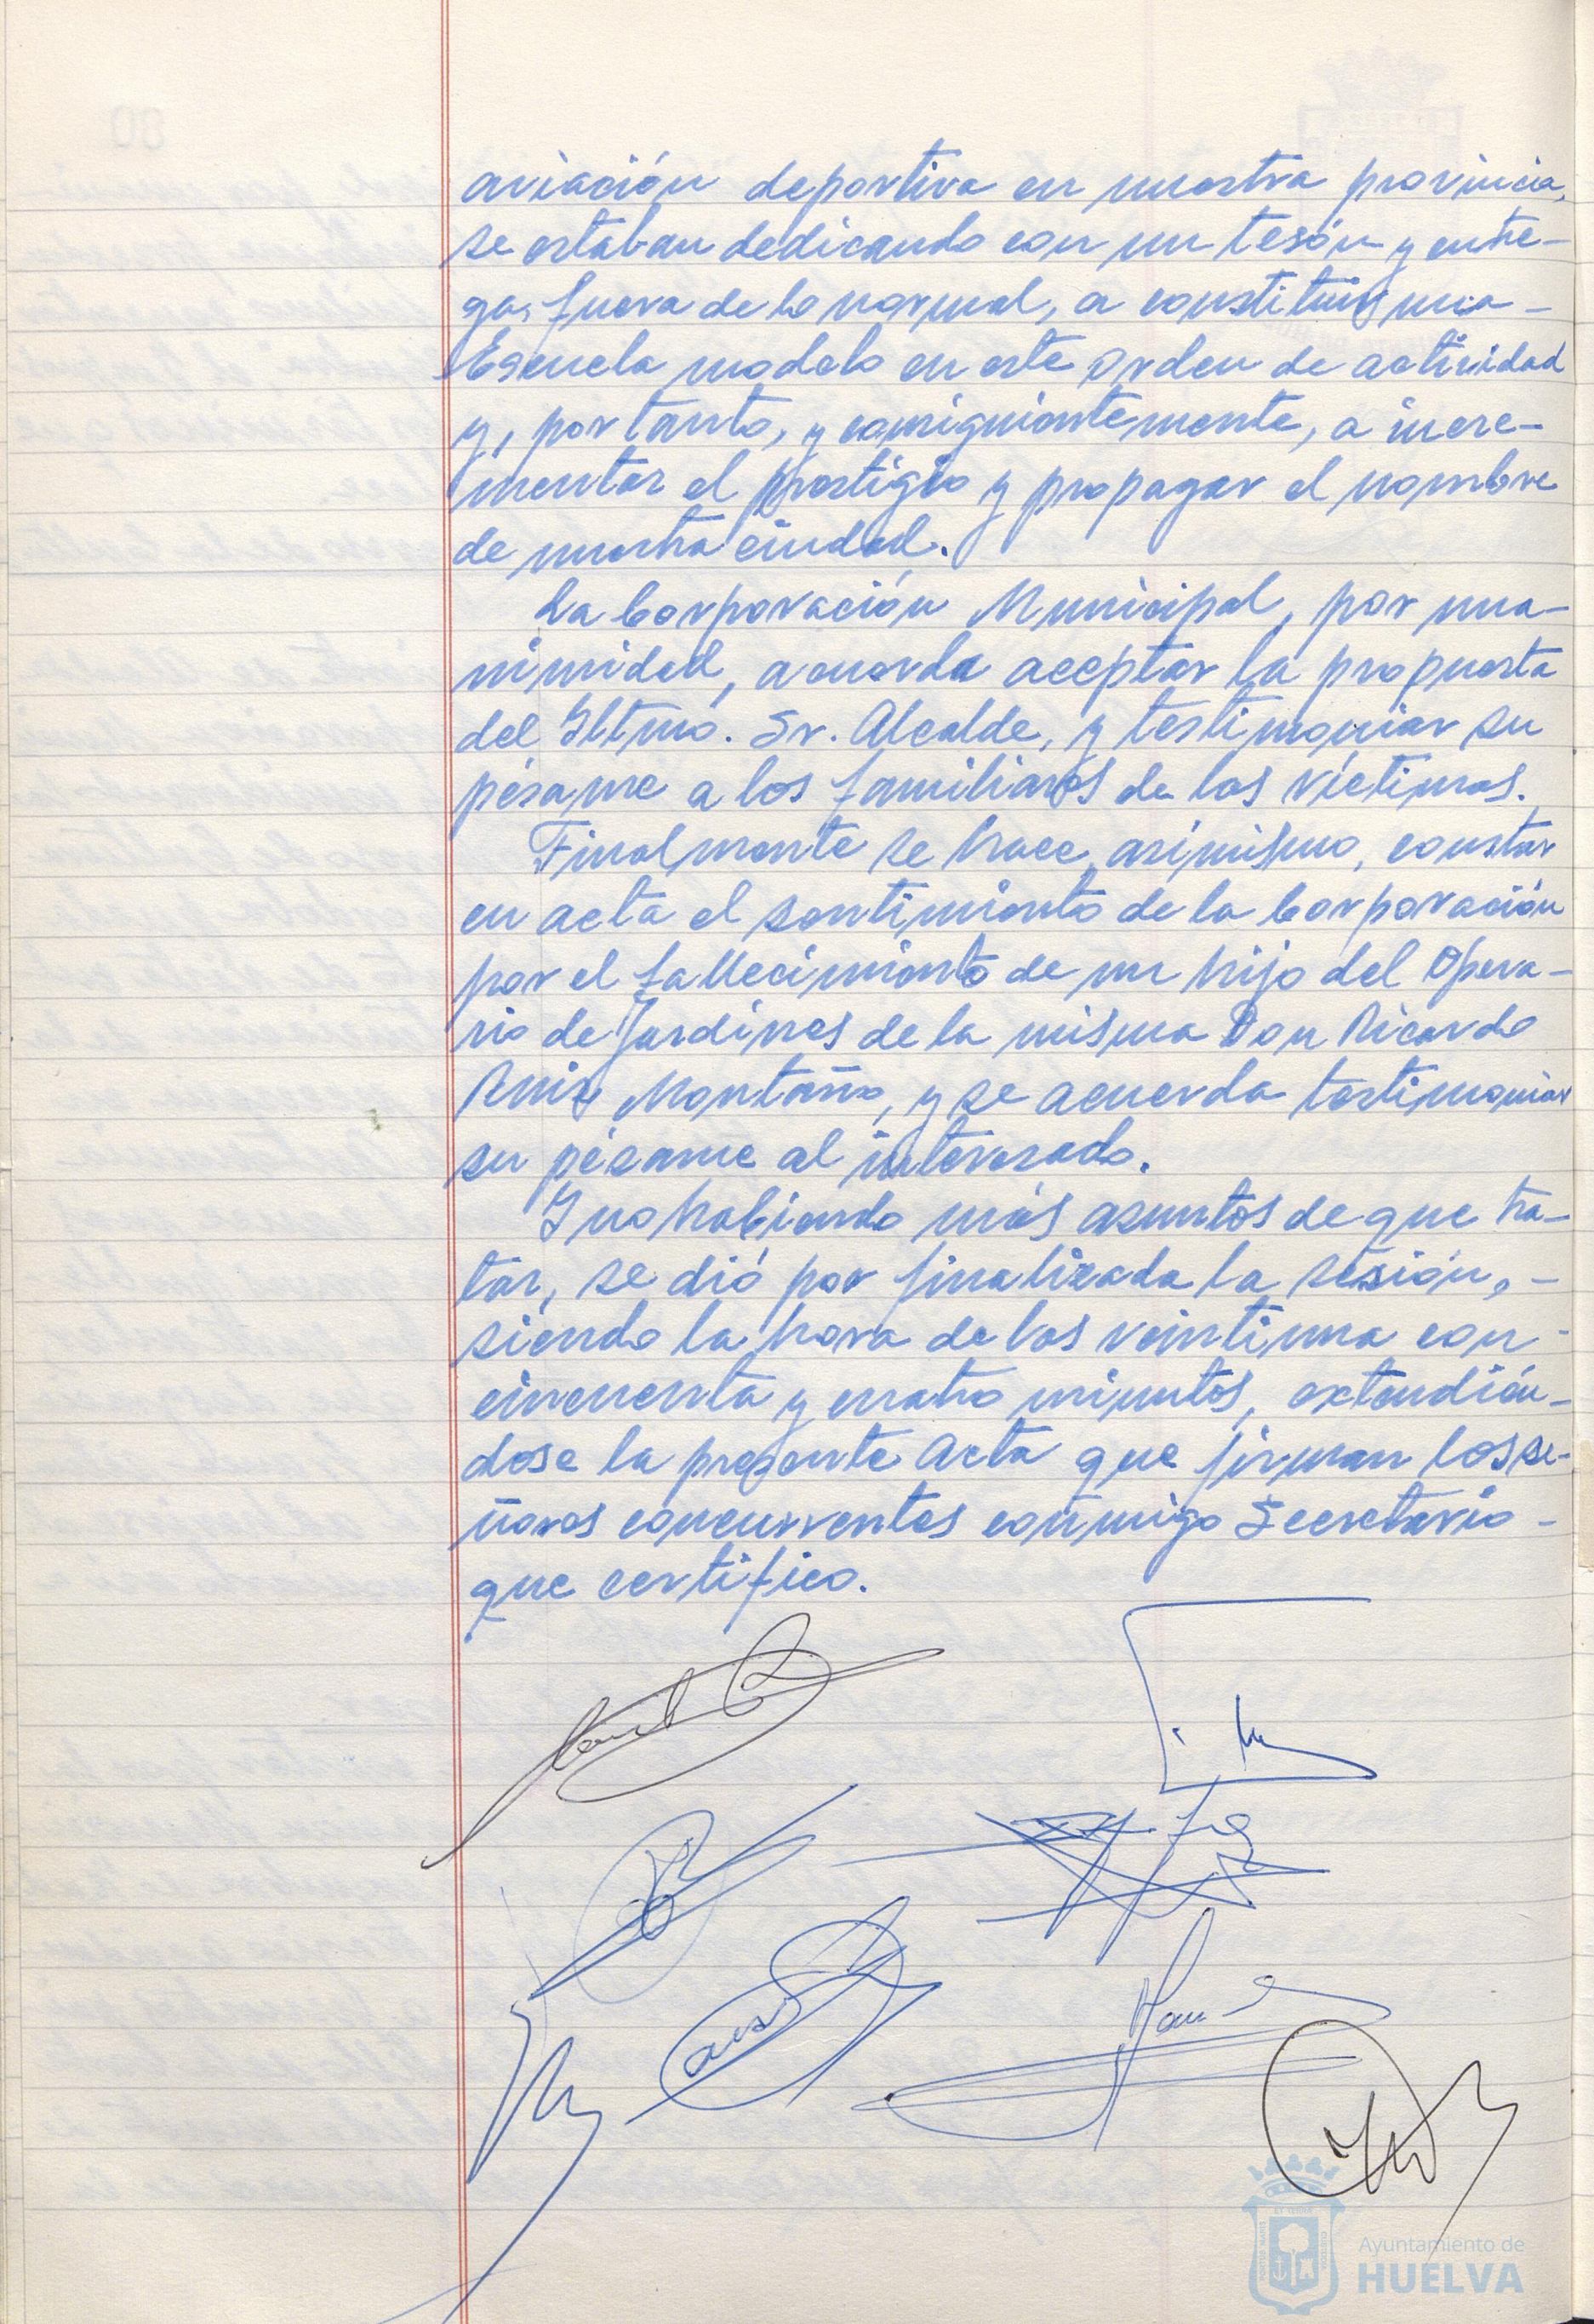 aviación deportiva en nuestra provincia,
se estaban dedicando con un tesón y entre-
ga, fuera de lo normal, a constituir una -
Escuela modelo en este orden de actividad
y, por tanto, y consiguientemente, a incre-
mentar el prestigio y propagar el nombre
de nuestra ciudad.
La Corporación Municipal, por una-
nimidad, acuerda aceptar la propuesta
del Iltmo. Sr. Alcalde, y testimoniar su
pésame a los familiares de las víctimas.
Finalmente se hace, asimismo, constar
en acta el sentimiento de la Corporación
por el fallecimiento de un hijo del Opera-
rio de Jardines de la misma Don Ricardo
Ruiz Montaño, y se acuerda testimoniar
su pésame al interesado.
Y no habiendo más asuntos de que tra-
tar, se dió por finalizada la sesión, -
siendo la hora de las veintiuna con -
cincuenta y cuatro minutos, extendién-
dose la presente Acta que firman los se-
ñores concurrentes conmigo Secretario -
que certifico.
Ayuntamiento de
HUELVA